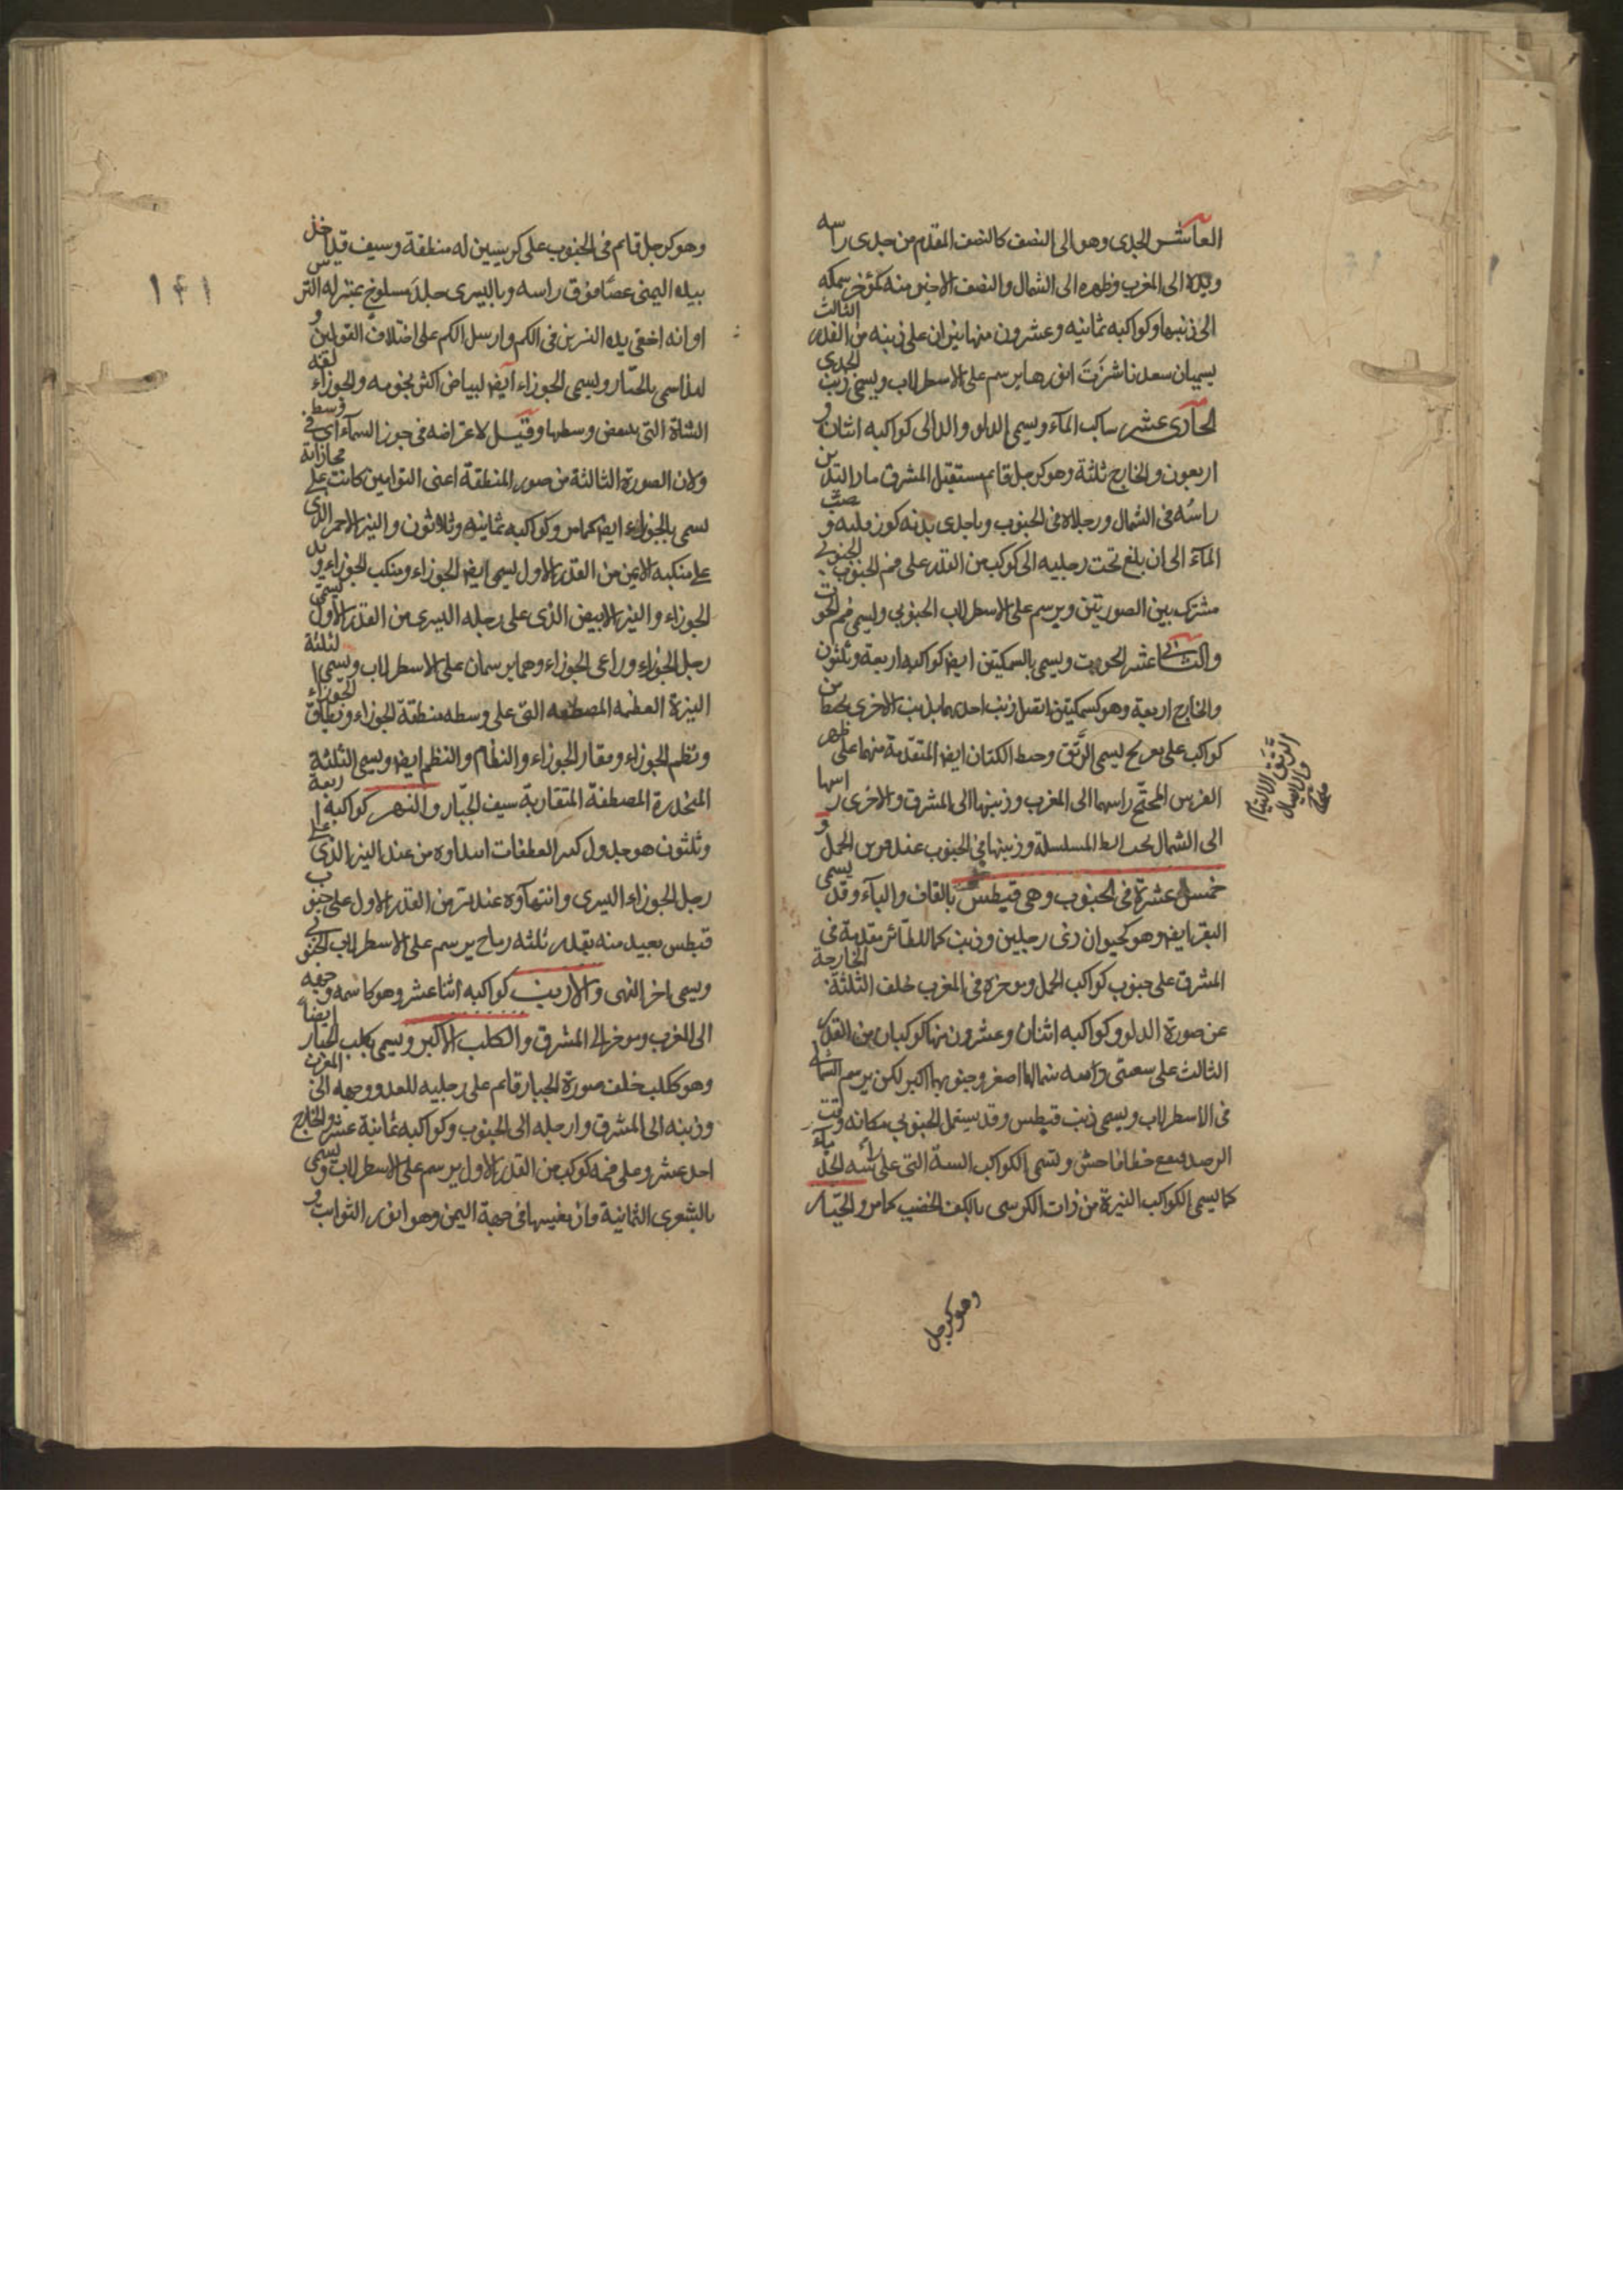 العاشر الجدى وهو الى النصف كالنصف المقدم من جدى راسه
ويداه الى المغرب وظهره الى الشمال والنصف الاخير منه كمؤخر سمكه
الى ذنبها وكواكبه ثمانيه وعشرون منها نيران على ذنبه من القدر الثالث
يسميان سعد ناشرة انورهما يرسم على الاسطرلاب ويسمى ذنب الجدى
الحادى عشر ساكب المآء ويسمى الدلو والدالى كواكبه اثنان و
اربعون والخارج ثلثة وهو كرجل قائم مستقبل المشرق ماد اليدين
راسه فى الشمال ورجلاه فى الجنوب وباحدى يديه كوز قلبه و صب
المآء الى ان بلغ تحت رجليه الى كوكب من القدر على فم الجنوب الجنوبى
مشترك بين الصورتين ويرسم على الاسطرلاب الجنوبي ويسمى فم الحوت
والثانى عشر الحوت ويسمى بالسمكتين ايضا كواكبه اربعة وثلثون
والخارج اربعة وهو كسمكتين اتصل ذنب احديهما بذنب الاخرى بخط من
كواكب على تعريج يسمى الرتق وخيط الكتان ايضا المتقدمة منهما على ظهر
الفرس المجنح راسها الى المغرب وذنبها الى المشرق والاخرى راسها
الى الشمال تحت ابط المسلسلة وذنبها فى الجنوب عند قرن الحمل و
خمس عشرة فى الجنوب وهى قيطس بالقاف واليآء وقد يسمى
البقر ايضا وهو كحيوان ذى رجلين وذنب كما للطآئر مقدمه فى
المشرق على جنوب كواكب الحمل وموخره فى المغرب خلف الثلثة الخارجة
عن صورة الدلو وكواكبه اثنان وعشرون منها كوكبان من القدر
الثالث على شعبتى ذنبه شمالهما اصغر وجنوبهما اكبر لكن يرسم الشمالى
فى الاسطرلاب ويسمى ذنب قيطس وقد يستعمل الجنوبي مكانه وقت
الرصد فيقع خطا فاحش وتسمى الكواكب الستة التى على راسه الجذمآء
كما يسمى الكواكب النيرة من ذات الكرسى بالكف الخضيب كما مر والجبار
وهو كرجل
الرتق الالتيام
والارسال
وهو كرجل قائم فى الجنوب على كرسيين له منطقة وسيف قد اخذ
بيده اليمنى عصا فوق راسه وباليسرى جلد مسلوخ بمنزله الترس
او انه اخفى يده اليسرى فى الكم وارسل الكم على اختلاف القولين و
لذا سمى بالجبار ويسمى الجوزاء ايضا لبياض اكثر نجومه والجوزاء لغة
الشاة التى ببعض وسطها وقيل لاعتراضه فى جوز السمآء اى فى وسط
ولان الصورة الثالثة من صور المنطقة اعنى التوامين كانت على محاذاته
تسمى بالجوزاء ايضا كما مر وكواكبه ثمانيه وثلاثون والنير الاحمر الذى
على منكبه الايمن من القدر الاول يسمى ايضا الجوزاء ومنكب الجوزاء ويد
الجوزاء والنير الابيض الذى على رجله اليسرى من القدر الاول يسمى
رجل الجوزاء وراعى الجوزاء وهما يرسمان على الاسطرلاب ويسمى الثلثة
النيرة العظمه المصطفه التى على وسطه منطقة الجوزاء ونطاق الجوزاء
ونظم الجوزاء وفقار الجوزاء والنظام والنظم ايضا ويسمى الثلثة
المنحدرة المصطفة المتقاربة سيف الجبار والنهر كواكبه اربعة
وثلثون هو جدول كثير العطفات ابتداوه من عند النير الذى على
رجل الجوزاء اليسرى وانتهآوه عند نير من القدر الاول على جنوب
قيطس بعيد منه بقدر ثلثه رماح يرسم على الاسطرلاب الجنوبى
ويسمى اخر النهر والارنب كواكبه اثنا عشر وهو كاسمه وجهه
الى المغرب وموخره الى المشرق والكلب الاكبر ويسمى بكلب الجبار ايضا
وهو ككلب خلف صورة الجبار قائم على رجليه للعدو ووجهه الى المغرب
وذنبه الى المشرق وارجله الى الجنوب وكواكبه ثمانية عشر والخارج
احد عشر وعلى فمه كوكب من القدر الاول يرسم على الاسطرلاب ويسمى
بالشعرى اليمانية فان مغيبها فى جهة اليمن وهو انور الثوابت و
١٤١